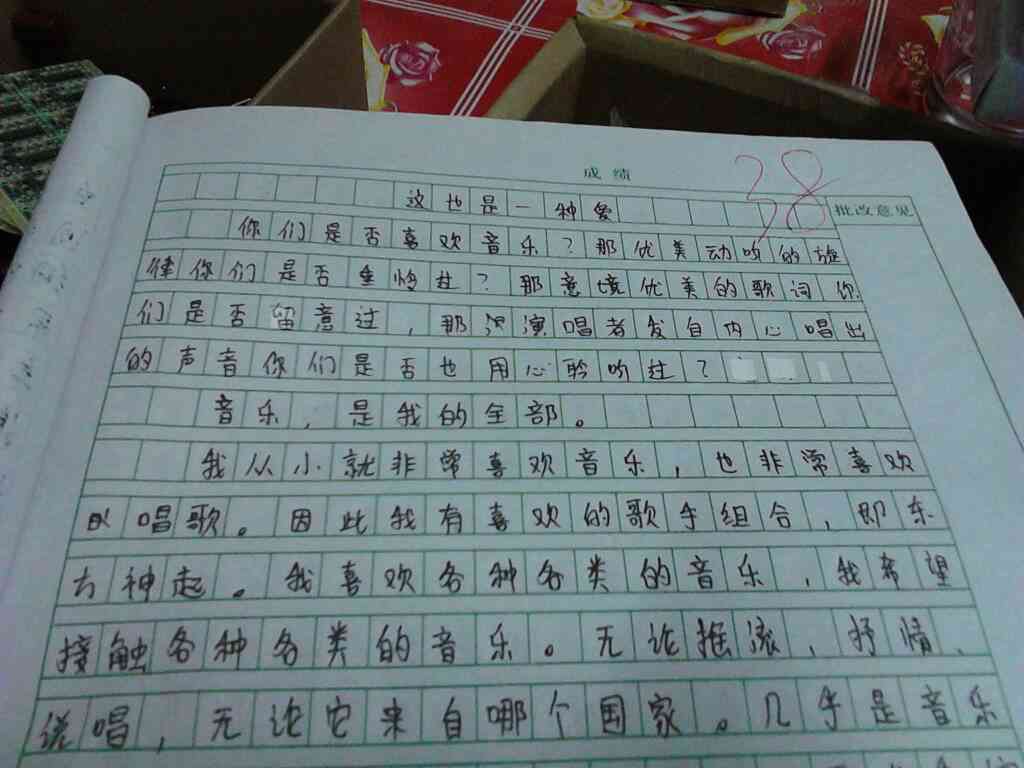 成绩
38
批改意见
这也是一种象
你们是否喜欢音乐？那优美动听的旋
律你们是否垂怜过？那意境优美的歌词你
们是否留意过，那演唱者发自内心唱出
的声音你们是否也用心聆听过？
音乐，是我的全部。
我从小就非常喜欢音乐，也非常喜欢
唱歌。因此我有喜欢的歌手组合，即东
方神起。我喜欢各种各类的音乐，我希望
接触各种各类的音乐。无论摇滚、抒情、
说唱，无论它来自哪个国家。几乎是音乐